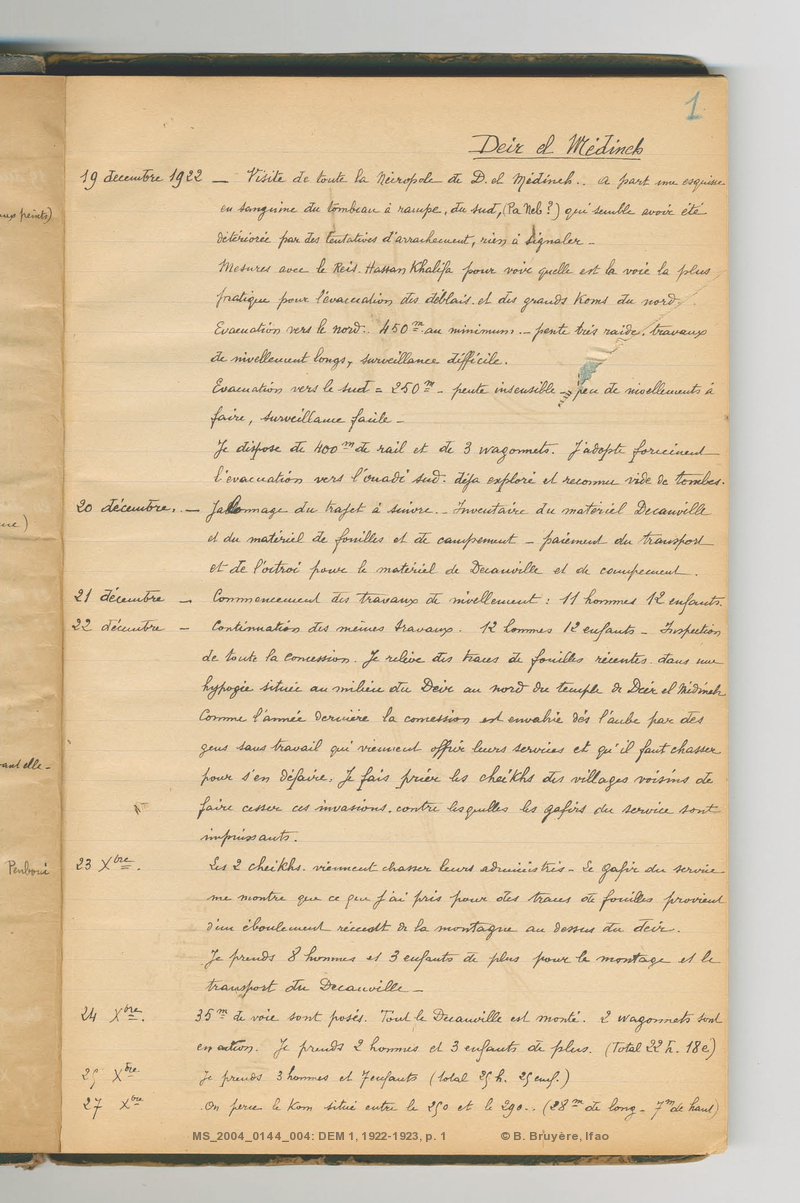 1
Deir el Médineh
19 décembre 1922 — Visite de toute la Nécropole de D. el Médineh.. A part une esquisse
en sanguine du tombeau à rampe, du sud, (Pa Neb?) qui semble avoir été
détériorée par des tentatives d'arrachement, rien à signaler —
Mesures avec le Reis. Hassan Khalifa pour voir quelle est la voie la plus
pratique pour l'évacuation des déblais. et des grands Koms du nord.
Evacuation vers le nord.. 450m au minimum. — pente très raide. travaux
de nivellement longs, surveillance difficile.
Evacuation vers le sud = 250m — pente insensible — peu de nivellements à
faire, surveillance facile —
Je dispose de 400m de rail et de 3 wagonnets. J'adopte forcément
l'évacuation vers l'ouadi sud. déjà exploré et reconnu vide de tombes.
20 décembre. — Jalonnage du trajet à suivre. — Inventaire du matériel Decauville
et du matériel de fouilles et de campement — paiement du transport
et de l'octroi pour le matériel de Decauville et de campement.
21 décembre — Commencement des travaux de nivellement : 11 hommes 12 enfants.
22 décembre — Continuation des mêmes travaux. 12 hommes 12 enfants — Inspection
de toute la concession. Je relève des traces de fouilles récentes. dans une
hypogée située au milieu du Deir au nord du temple de Deir el Médineh
Comme l'année dernière la concession est envahie dès l'aube par des
gens sans travail qui viennent offrir leurs services et qu'il faut chasser
pour s'en défaire. Je fais prier les cheikhs des villages voisins de
faire cesser ces invasions. contre lesquelles les gafirs du service sont
impuissants.
Penboui
23 Xbre. Les 2 cheikhs. viennent chasser leurs administrés — Le gafir du service
me montre que ce que j'ai pris pour des traces de fouilles provient
d'un éboulement récent de la montagne au dessus du deir.
Je prends 8 hommes et 3 enfants de plus pour le montage et le
transport du Decauville —
24 Xbre. 35m de voie sont posés. Tout le Decauville est monté. 2 wagonnets sont
en action. Je prends 2 hommes et 3 enfants de plus. (Total 22 h. 18 e)
25 Xbre Je prends 3 hommes et 7 enfants (total 25 h. 25 enf.)
27 Xbre On perce le Kom situé entre le 250 et le 290.. (28m de long — 7m de haut)
MS_2004_0144_004: DEM 1, 1922-1923, p. 1 © B. Bruyère, Ifao